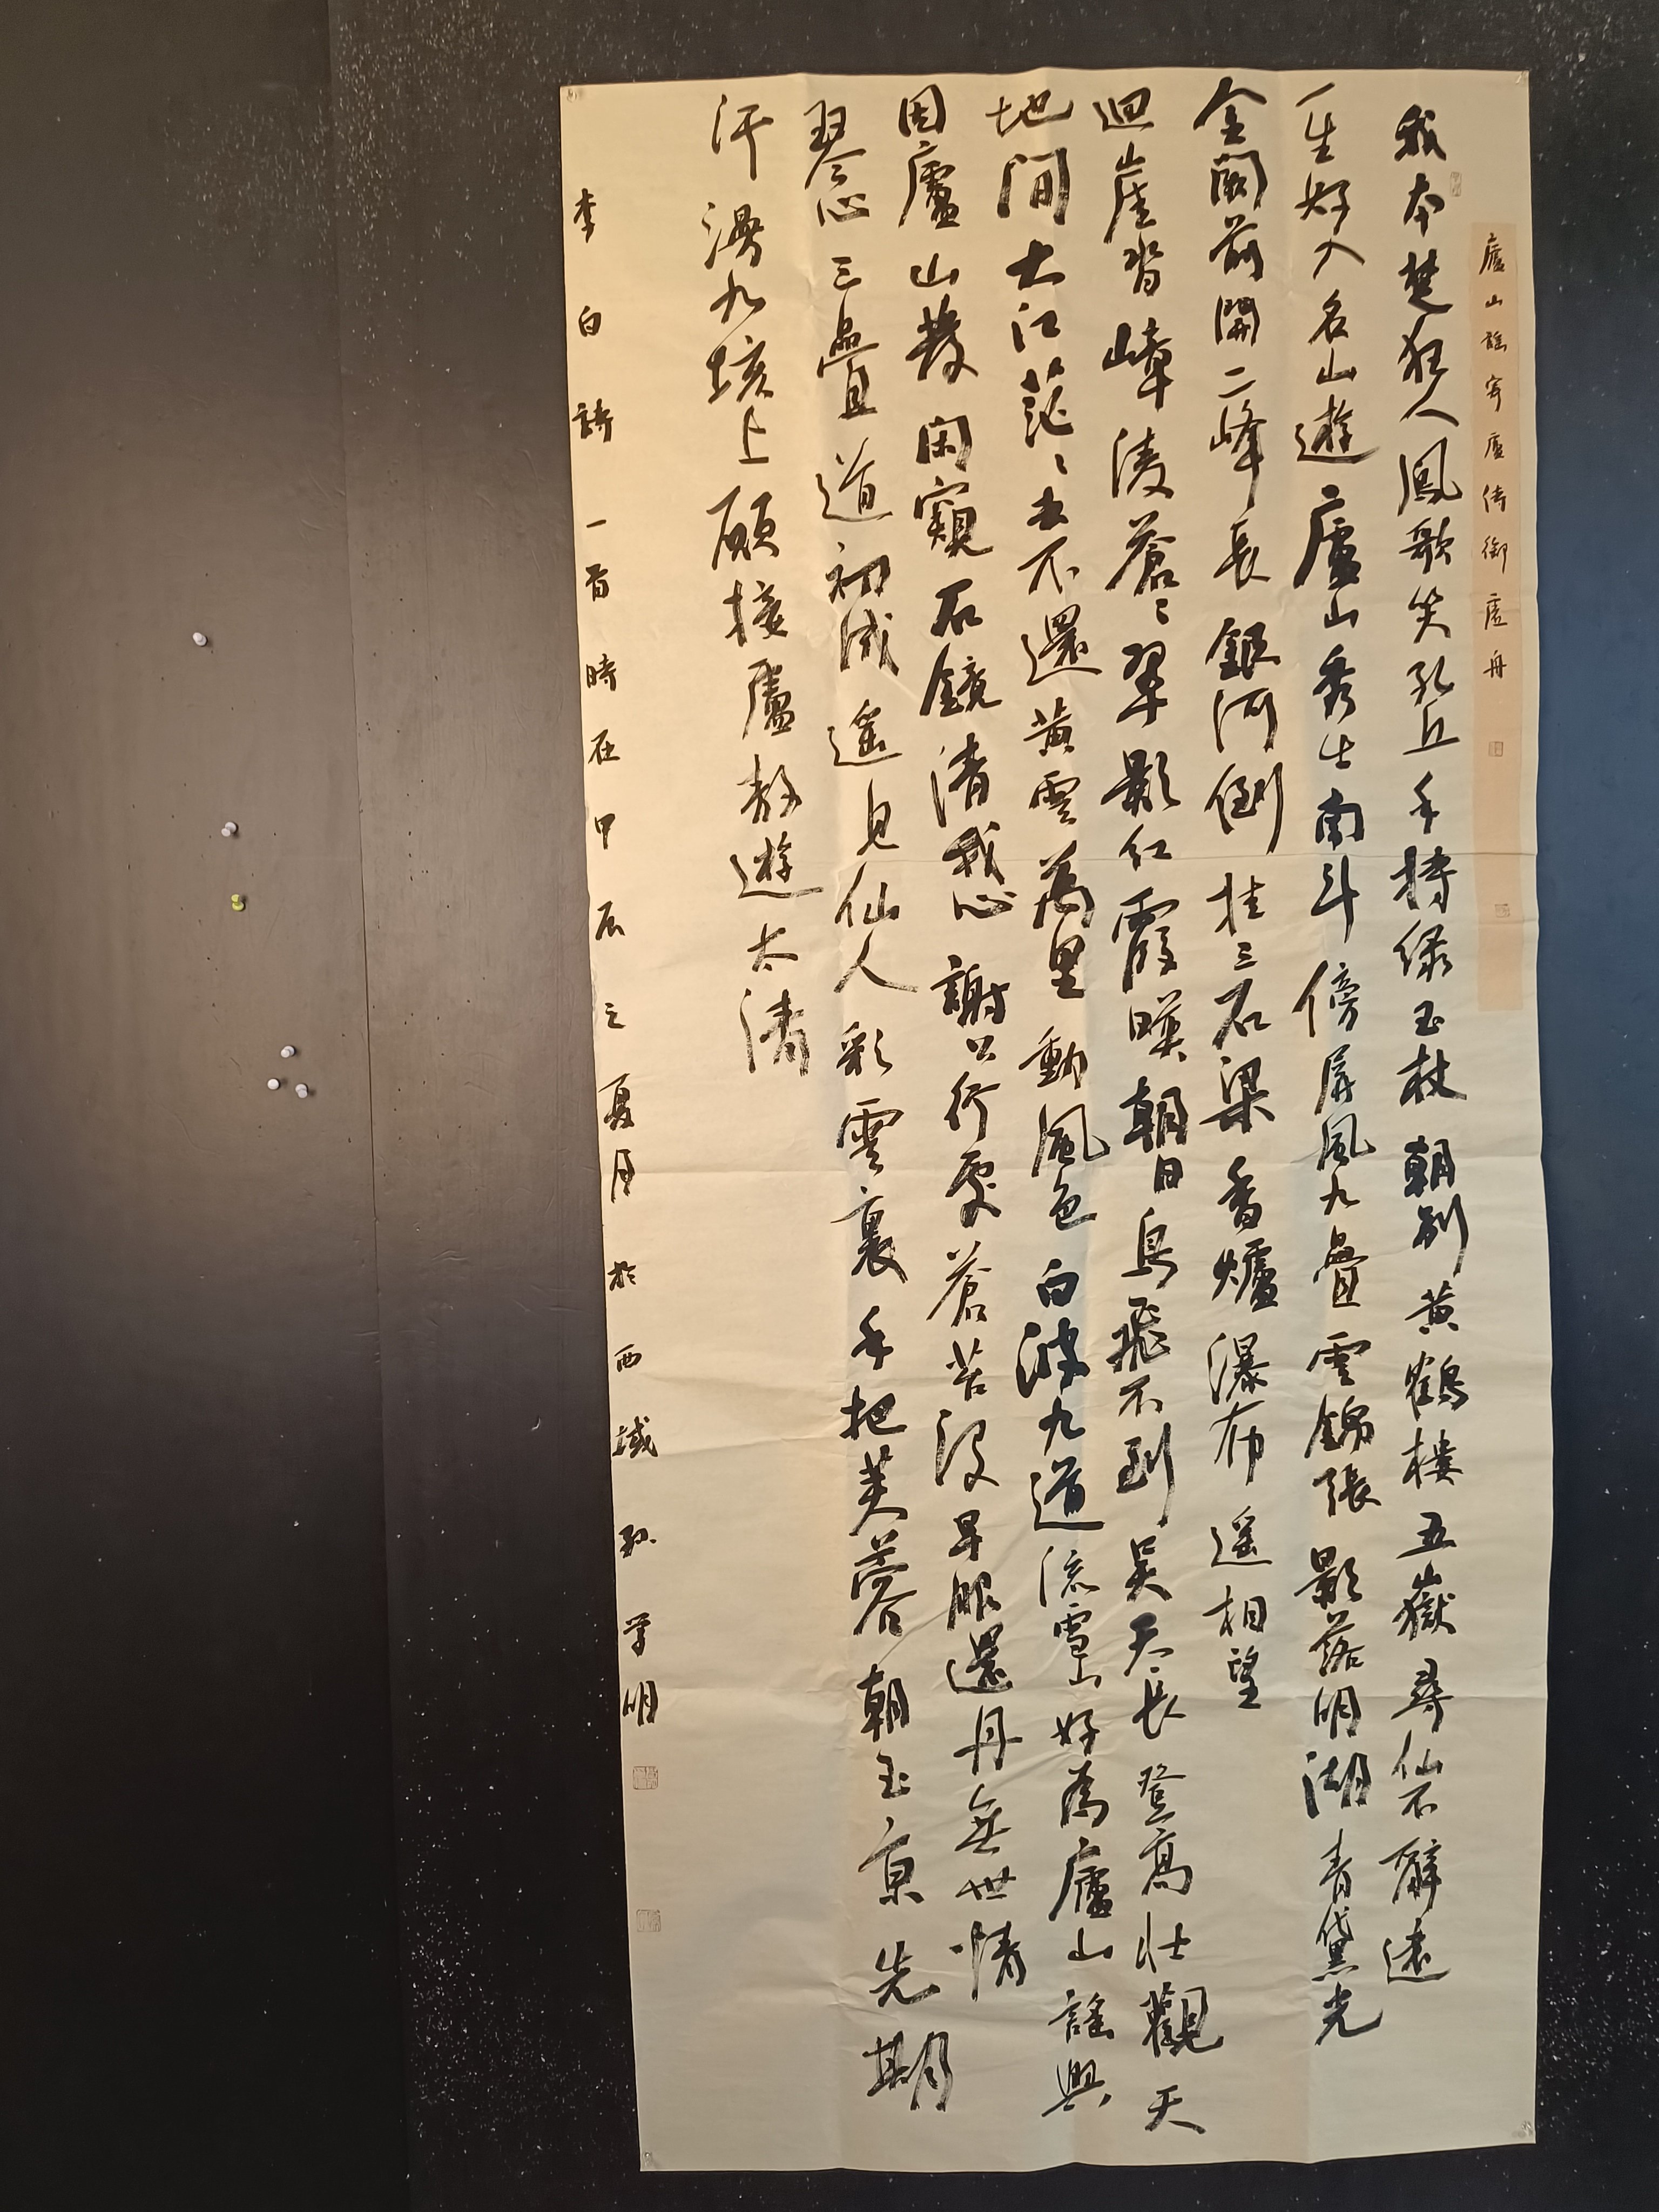 廬山謠寄盧侍御虛舟
我本楚狂人鳳歌笑孔丘手持綠玉杖朝別黃鶴樓五嶽尋仙不辭遠
一生好入名山遊廬山秀出南斗傍屏風九疊雲錦張影落明湖青黛光
金闕前開二峰長銀河倒挂三石梁香爐瀑布遥相望
迴崖沓嶂淩蒼〻翠影紅霞暎朝日鳥飛不到吴天長登高壯觀天
地間大江茫〻去不還黃雲萬里動風色白波九道流雪山好為廬山謠興
因廬山發閑窺石鏡清我心謝公行處蒼苔沒早服還丹無世情
琴心三疊道初成遥見仙人彩雲裏手把芙蓉朝玉京先期
汗漫九垓上願接盧敖遊太清
李白詩一首時在甲辰之夏月於西域孙学明